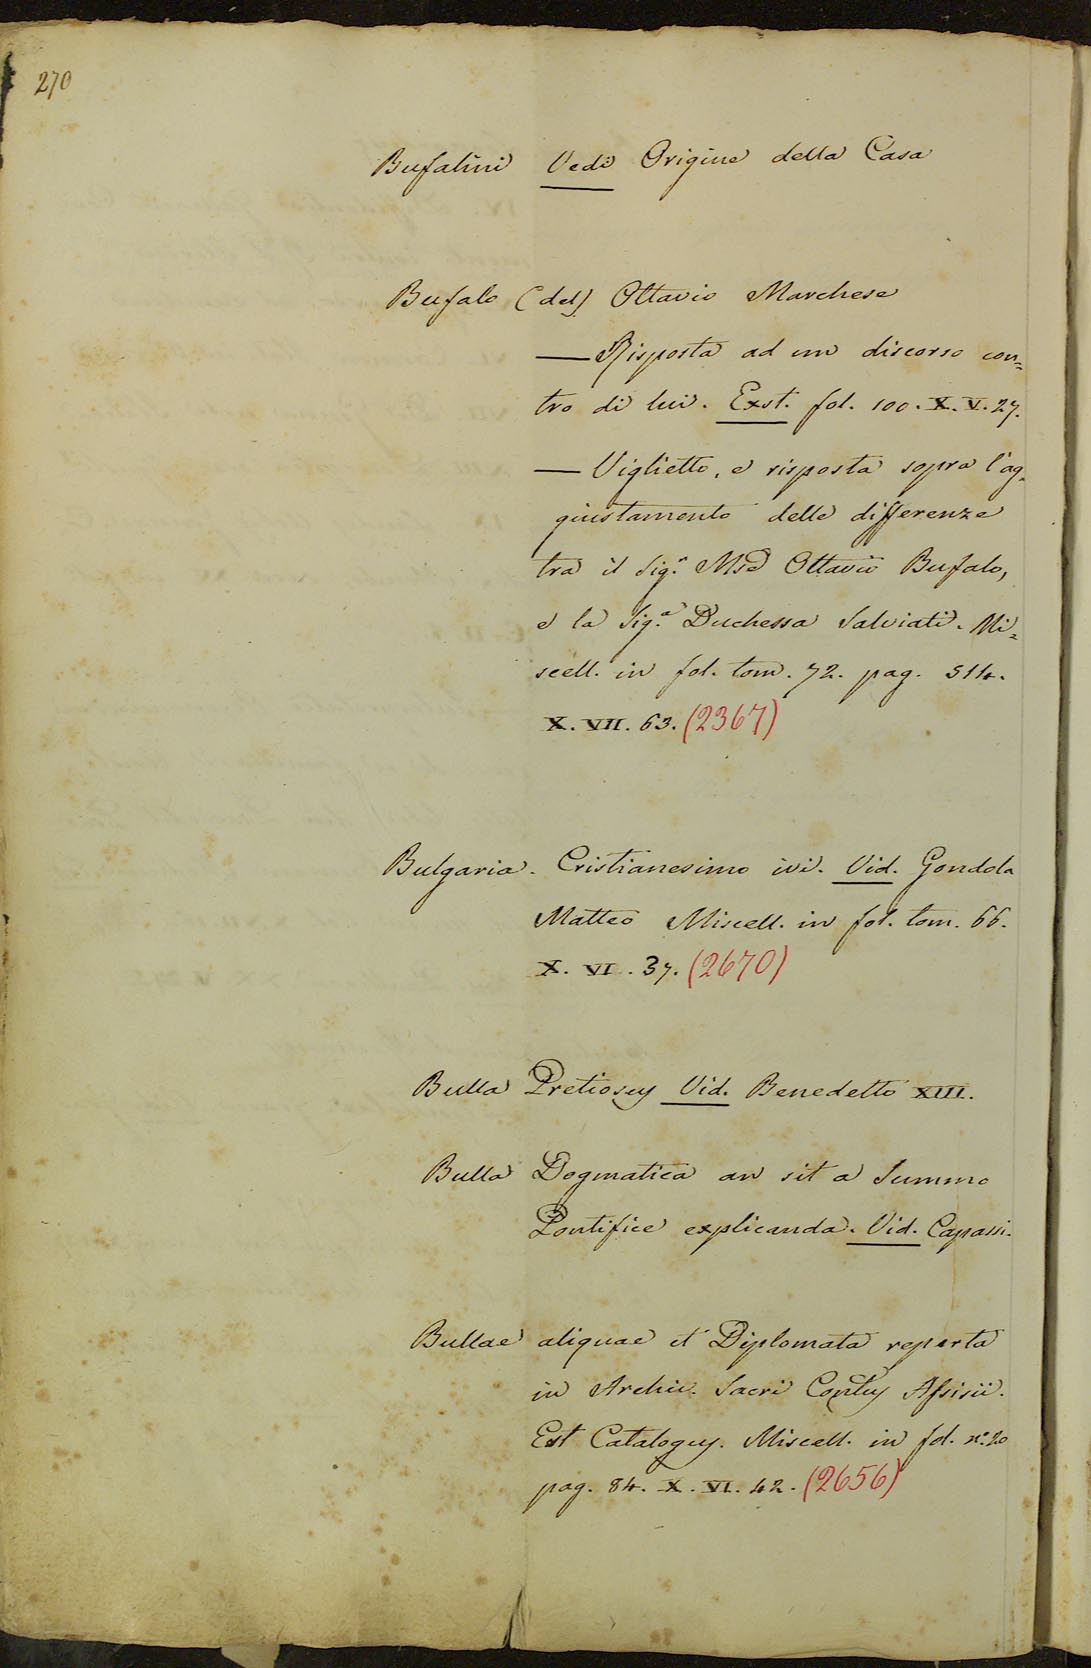 270
Bufalini Vedi Origine della Casa
Bufalo (del) Ottavio Marchese
— Risposta ad un discorso con=
tro di lui. Exst. fol. 100. X. V. 27.
— Viglietto, e risposta sopra l'ag=
giustamento delle differenze
tra il Sig.r Mse Ottavio Bufalo,
e la Sig.a Duchessa Salviati. Mi=
scell. in fol. tom. 72. pag. 514.
X. VII. 63. (2367)
Bulgaria. Cristianesimo ivi. Vid. Gondola
Matteo Miscell. in fol. tom. 66.
X. VI. 37. (2670)
Bulla Pretiosus Vid. Benedetto XIII.
Bulla Dogmatica an sit a Summo
Pontifice explicanda. Vid. Capassi.
Bullae aliquae et Diplomata reperta
in Archiv. Sacri Contus Assisii.
Est Catalogus. Miscell. in fol. n.o 20
pag. 84. X. VI. 42. (2656)